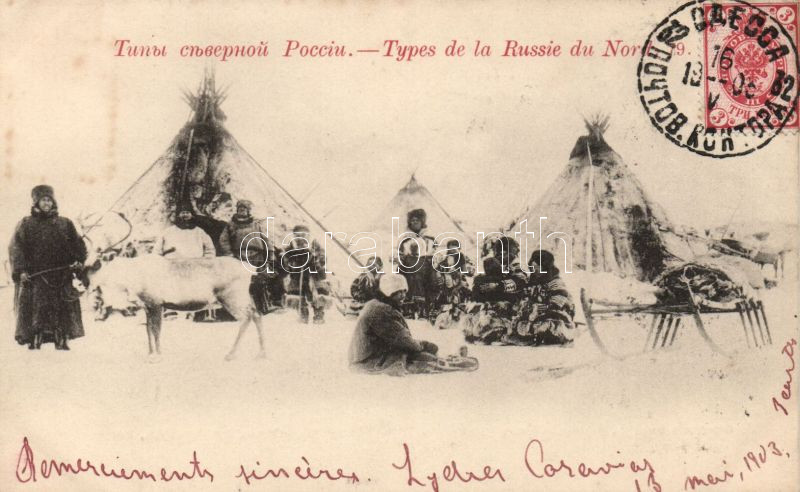 Типы сѣверной Россіи.—Types de la Russie du Nord 9.
ОДЕССА
16
19 — 03
V
ПОЧТОВ. КОНТОРА
3 ТРИ 3
darabanth
Remerciements sincères. Lydia
13 mai, 1903,